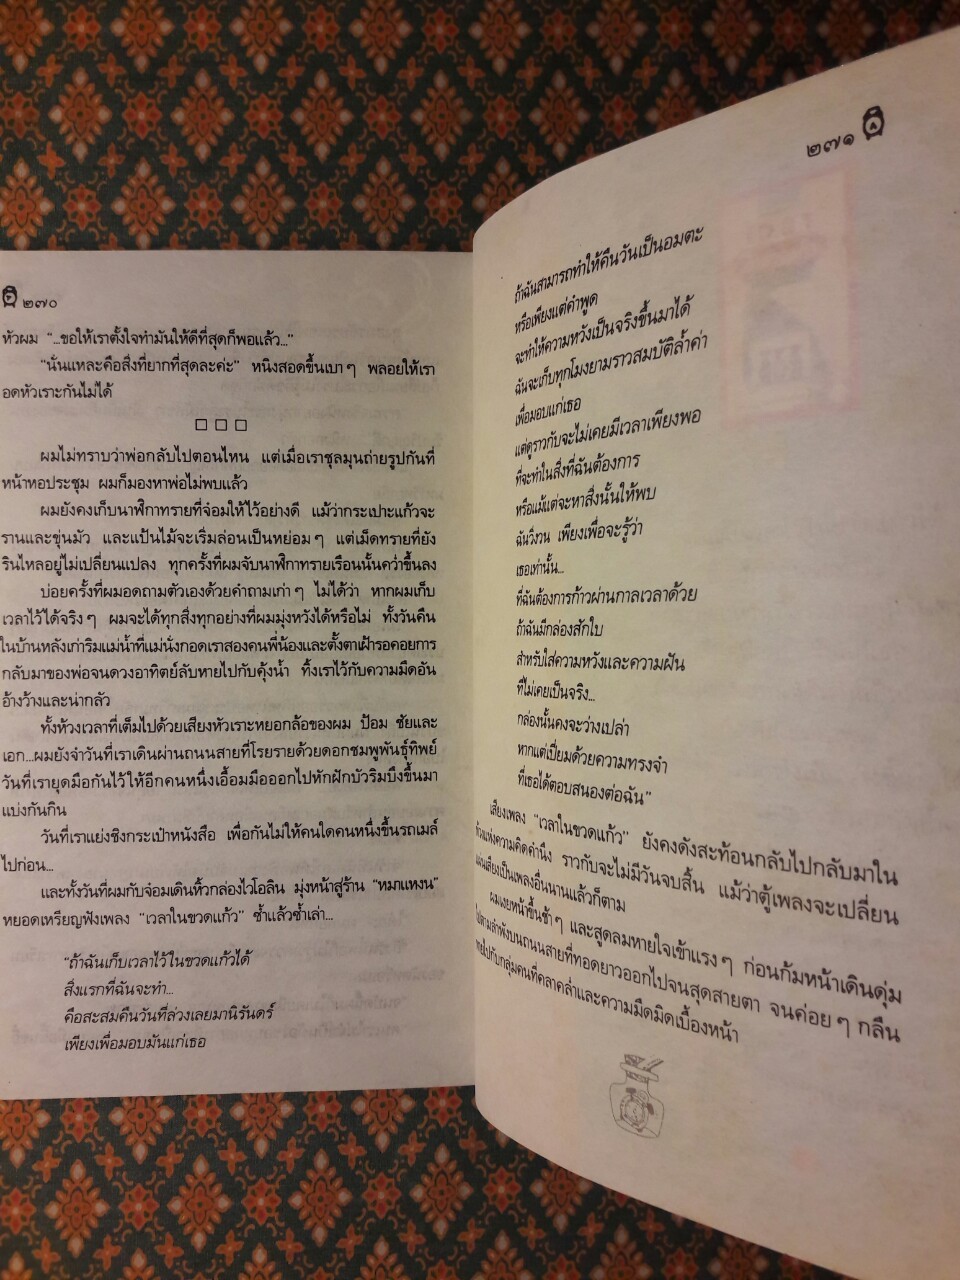 ๒๗๐
หัวผม “...ขอให้เราตั้งใจทำมันให้ดีที่สุดก็พอแล้ว...”
“นั่นแหละคือสิ่งที่ยากที่สุดละค่ะ” หนิงสอดขึ้นเบาๆ พลอยให้เรา
อดหัวเราะกันไม่ได้
ผมไม่ทราบว่าพ่อกลับไปตอนไหน แต่เมื่อเราชุลมุนถ่ายรูปกันที่
หน้าหอประชุม ผมก็มองหาพ่อไม่พบแล้ว
ผมยังคงเก็บนาฬิกาทรายที่จ๋อมให้ไว้อย่างดี แม้ว่ากระเปาะแก้วจะ
รานและขุ่นมัว และแป้นไม้จะเริ่มล่อนเป็นหย่อมๆ แต่เม็ดทรายที่ยัง
รินไหลอยู่ไม่เปลี่ยนแปลง ทุกครั้งที่ผมจับนาฬิกาทรายเรือนนั้นคว่ำขึ้นลง
บ่อยครั้งที่ผมอดถามตัวเองด้วยคำถามเก่าๆ ไม่ได้ว่า หากผมเก็บ
เวลาไว้ได้จริงๆ ผมจะได้ทุกสิ่งทุกอย่างที่ผมมุ่งหวังได้หรือไม่ ทั้งวันคืน
ในบ้านหลังเก่าริมแม่น้ำที่แม่นั่งกอดเราสองคนพี่น้องและตั้งตาเฝ้ารอคอยการ
กลับมาของพ่อจนดวงอาทิตย์ลับหายไปกับคุ้งน้ำ ทิ้งเราไว้กับความมืดอัน
อ้างว้างและน่ากลัว
ทั้งห้วงเวลาที่เต็มไปด้วยเสียงหัวเราะหยอกล้อของผม ป้อม ชัยและ
เอก...ผมยังจำวันที่เราเดินผ่านถนนสายที่โรยรายด้วยดอกชมพูพันธุ์ทิพย์
วันที่เรายุดมือกันไว้ให้อีกคนหนึ่งเอื้อมมือออกไปหักฝักบัวริมบึงขึ้นมา
แบ่งกันกิน
วันที่เราแย่งชิงกระเป๋าหนังสือ เพื่อกันไม่ให้คนใดคนหนึ่งขึ้นรถเมล์
ไปก่อน...
และทั้งวันที่ผมกับจ๋อมเดินหิ้วกล่องไวโอลิน มุ่งหน้าสู่ร้าน “หมาแหงน”
หยอดเหรียญฟังเพลง “เวลาในขวดแก้ว” ซ้ำแล้วซ้ำเล่า...
“ถ้าฉันเก็บเวลาไว้ในขวดแก้วได้
สิ่งแรกที่ฉันจะทำ...
คือสะสมคืนวันที่ล่วงเลยมานิรันดร์
เพียงเพื่อมอบมันแก่เธอ
๒๗๑
ถ้าฉันสามารถทำให้คืนวันเป็นอมตะ
หรือเพียงแต่คำพูด
จะทำให้ความหวังเป็นจริงขึ้นมาได้
ฉันจะเก็บทุกโมงยามราวสมบัติล้ำค่า
เพื่อมอบแก่เธอ
แต่ดูราวกับจะไม่เคยมีเวลาเพียงพอ
ที่จะทำในสิ่งที่ฉันต้องการ
หรือแม้แต่จะหาสิ่งนั้นให้พบ
ฉันวิ่งวน เพียงเพื่อจะรู้ว่า
เธอเท่านั้น...
ที่ฉันต้องการก้าวผ่านกาลเวลาด้วย
ถ้าฉันมีกล่องสักใบ
สำหรับใส่ความหวังและความฝัน
ที่ไม่เคยเป็นจริง...
กล่องนั้นคงจะว่างเปล่า
หากแต่เปี่ยมด้วยความทรงจำ
ที่เธอได้ตอบสนองต่อฉัน”
เสียงเพลง “เวลาในขวดแก้ว” ยังคงดังสะท้อนกลับไปกลับมาใน
ห้วงแห่งความคิดคำนึง ราวกับจะไม่มีวันจบสิ้น แม้ว่าตู้เพลงจะเปลี่ยน
แผ่นเสียงเป็นเพลงอื่นนานแล้วก็ตาม
ผมเงยหน้าขึ้นช้าๆ และสูดลมหายใจเข้าแรงๆ ก่อนก้มหน้าเดินดุ่ม
ไปตามลำพังบนถนนสายที่ทอดยาวออกไปจนสุดสายตา จนค่อยๆ กลืน
หายไปกับกลุ่มคนที่คลาคล่ำและความมืดมิดเบื้องหน้า